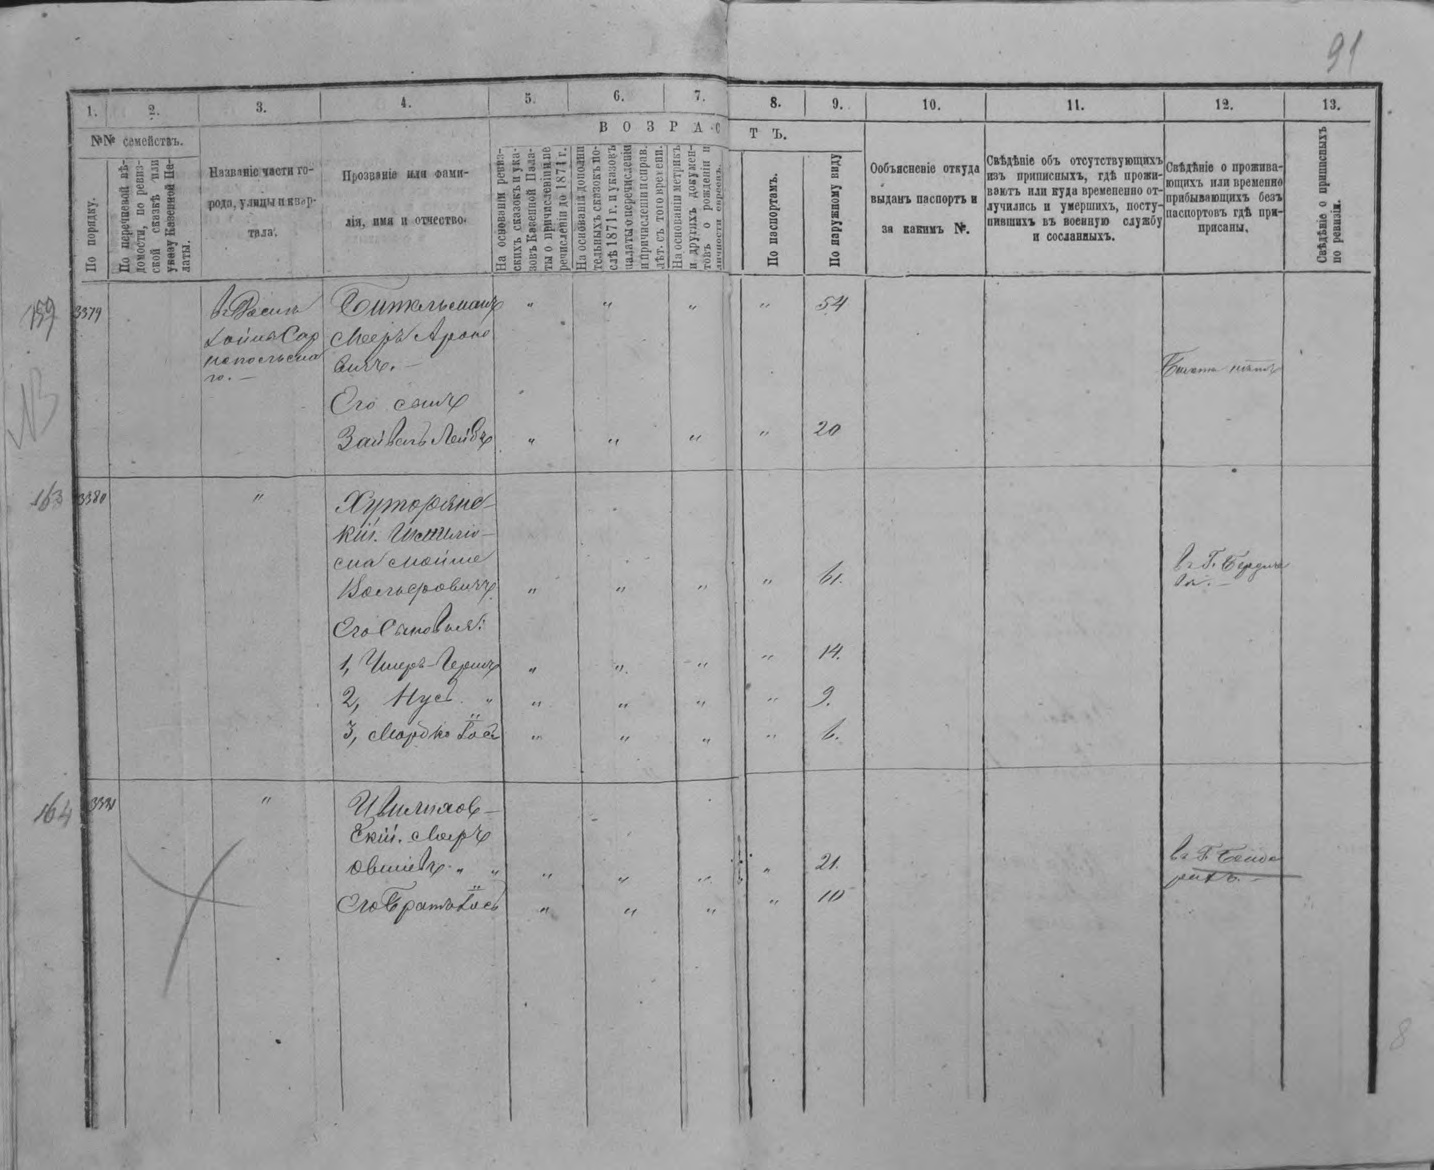 91
1. 2. 3. 4. 5. 6. 7. 8. 9. 10. 11. 12. 13.
№№ семействъ.
По порядку.
По перечневой вѣ-
домости, по ревиз-
ской сказкѣ или
указу Казенной Па-
латы.
Названіе части го-
рода, улицы и квар-
тала.
Прозваніе или фами-
лія, имя и отчество.
ВОЗРАСТЪ.
На основаніи ревиз-
скихъ сказокъ и ука-
зовъ Казенной Пала-
ты о причисленіи пе
речисленіи до 1871 г.
На основаніи дополни
тельныхъ сказокъ по-
слѣ 1871 г. и указовъ
палаты о перечисленіи
и причисленіи и справ.
лѣт. съ того времени.
На основаніи метрикъ
и другихъ докумен-
товъ о рожденіи и
личности евреевъ.
По паспортамъ.
По наружному виду
Объясненіе откуда
выданъ паспортъ и
за какимъ №.
Свѣдѣніе объ отсутствующихъ
изъ приписныхъ, гдѣ прожи-
ваютъ или куда временно от-
лучились и умершихъ, посту-
пившихъ въ военную службу
и сосланныхъ.
Свѣдѣніе о прожива-
ющихъ или временно
прибывающихъ безъ
паспортовъ гдѣ при-
присаны.
Свѣдѣніе о приписныхъ
по ревизіи.
159 3379
Мееръ Ароно
вичъ. —
Его сынъ
" " " " 54
Зайвель Лейбъ " " " " 20
163 3380 " Хуторянс-
кій.
Мойше
Вольфовичъ " " " " 61.
въ Г. Бердиче
вѣ. —
Его Сыновья:
1, Герш " " " " 14.
2, Нус " " " " " 9.
3, Мордко " " " " 6.
164 3381 "
скій. Меръ
Овшіевъ " " " " " " 21.
въ Г. Бенде
рахъ. —
Его Братъ " " " " 10
8